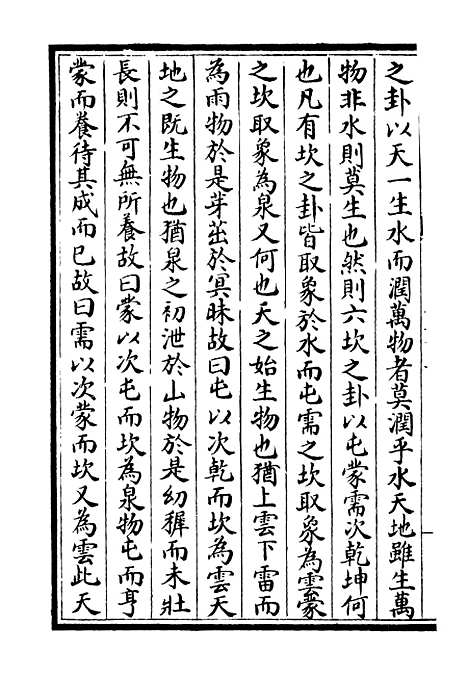 之卦以天一生水而潤萬物者莫潤乎水天地雖生萬
物非水則莫生也然則六坎之卦以屯蒙需次乾坤何
也凡有坎之卦皆取象於水而屯需之坎取象為雲蒙
之坎取象為泉又何也天之始生物也猶上雲下雷而
為雨物於是芽茁於冥昧故曰屯以次乾而坎為雲天
地之既生物也猶泉之初泄於山物於是幼穉而未壯
長則不可無所養故曰蒙以次屯而坎為泉物屯而亨
蒙而養待其成而已故曰需以次蒙而坎又為雲此天